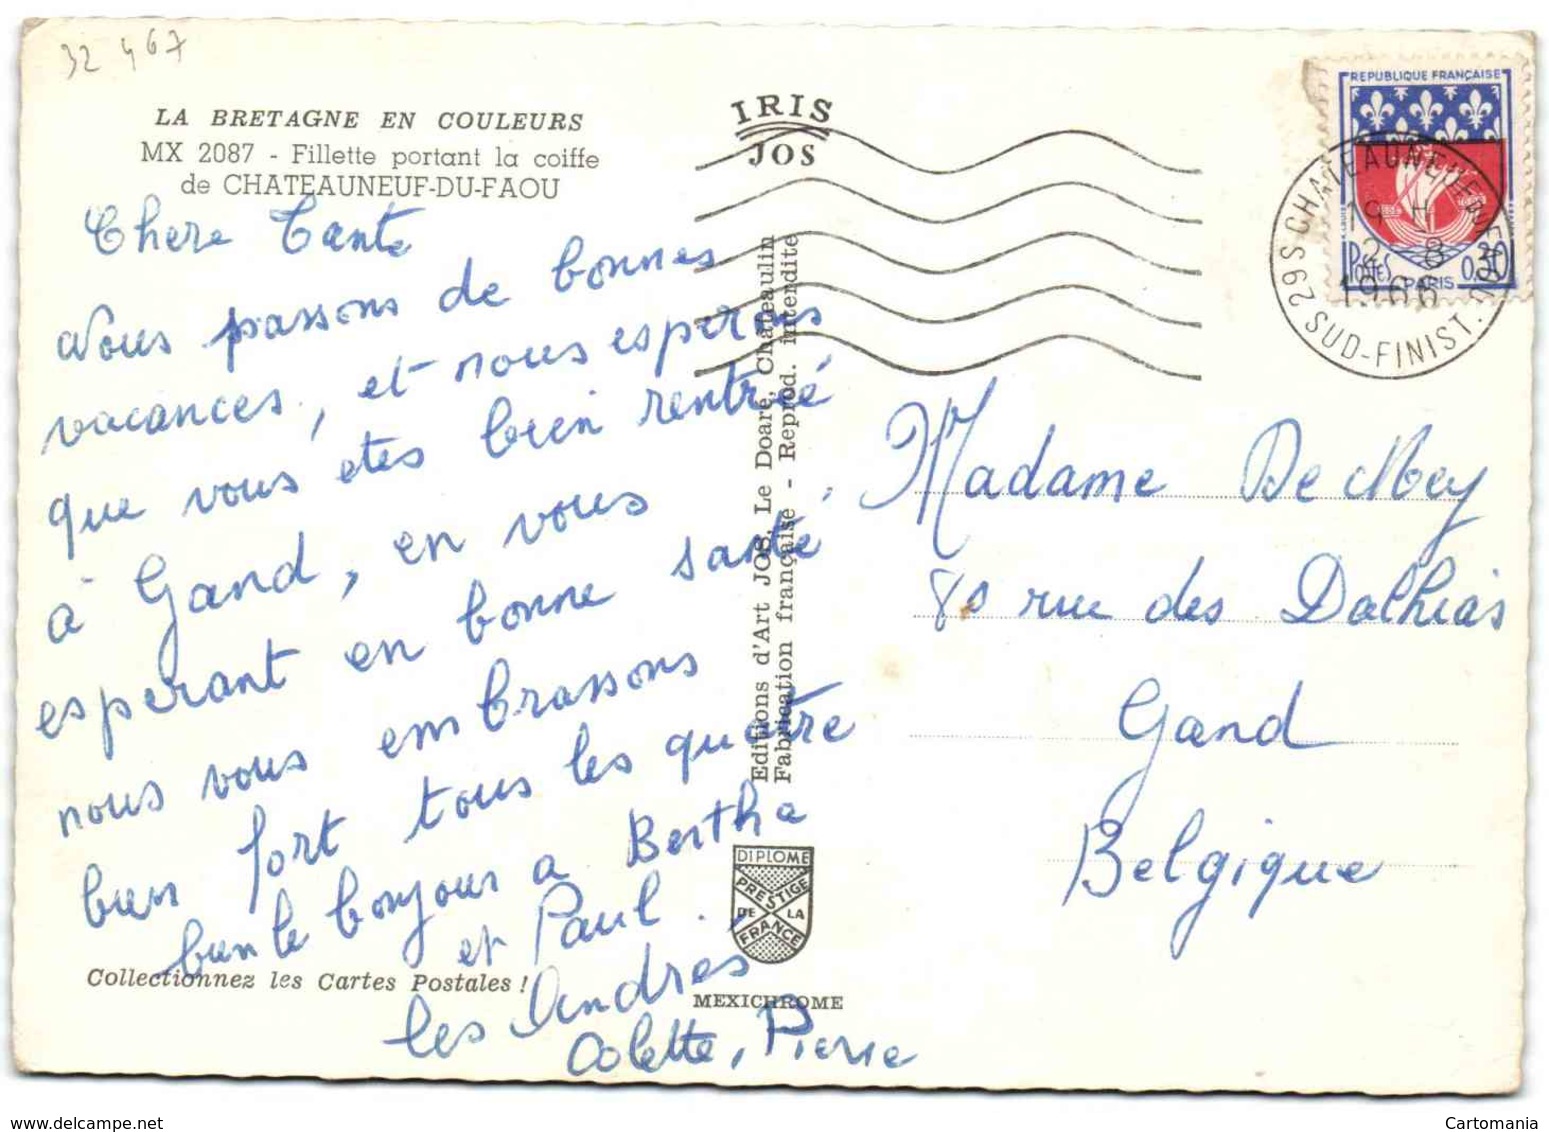 32 467
LA BRETAGNE EN COULEURS
MX 2087 - Fillette portant la coiffe
de CHATEAUNEUF-DU-FAOU
IRIS
JOS
REPUBLIQUE FRANÇAISE
POSTES 0,30
PARIS
CHATEAUNEUF DU FAOU
19 H
2 - 8
1966
29 S SUD-FINIST.
Chere Tante
Nous passons de bonnes
vacances, et nous esperons
que vous etes bien rentréé
à Gand, en vous
esperant en bonne santé,
nous vous embrassons
bien fort tous les quatre
bien le bonjour a Bertha
et Paul.
les Andrés
Colette, Pierre
Editions d'Art JOS, Le Doaré, Châteaulin
Fabrication française - Reprod. interdite
Madame De Mey
80 rue des Dalhias
Gand
Belgique
DIPLOME
PRESTIGE
DE LA
FRANCE
MEXICHROME
Collectionnez les Cartes Postales !
www.delcampe.net
Cartomania